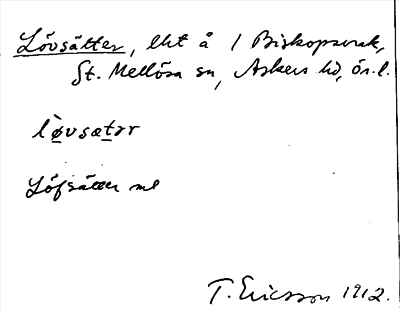 Lövsätter, lht å 1 Biskopsvrak,
St. Mellösa sn, Askers hd, ör.l.
lø̀vsætər
Löfsätter ml
T. Ericsson 1912.